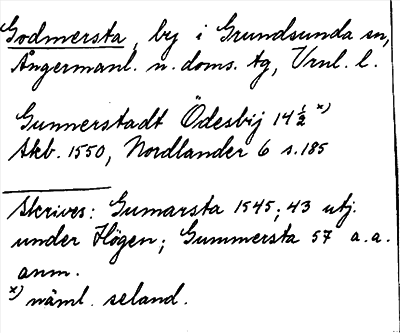 Godmersta, by i Grundsunda sn,
Ångermanl. n. doms. tg, Vrnl. l.
Gunnerstadt Ödesbij 14½ x)
Skb. 1550, Nordlander 6 s. 185
Skrives: Gumarsta 1545; 43 utj.
under Högen; Gummersta 57 a.a.
anm.
x) näml. seland.